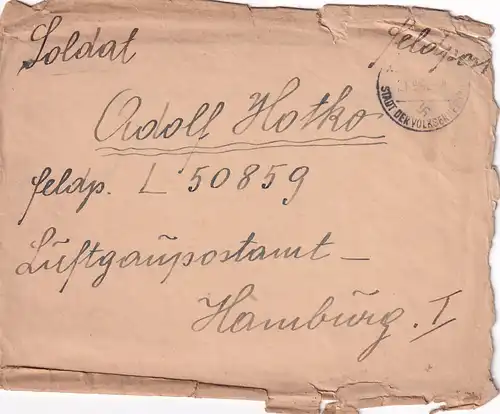 Soldat
Feldpost
STADT DER VOLKSER
Adolf Hotko
feldp. L 50859
Luftgaupostamt –
Hamburg. I